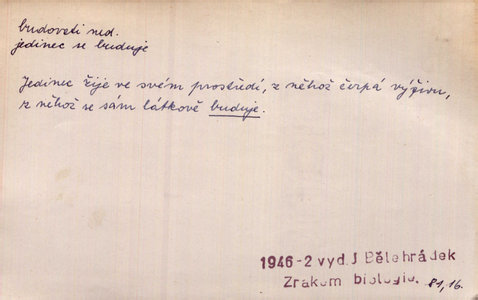 budovati ned.
jedinec se buduje
Jedinec žije ve svém prostředí, z něhož čerpá výživu,
z něhož se sám látkově buduje.
1946-2 vyd. J Bělehrádek
Zrakem biologie. 81,16.